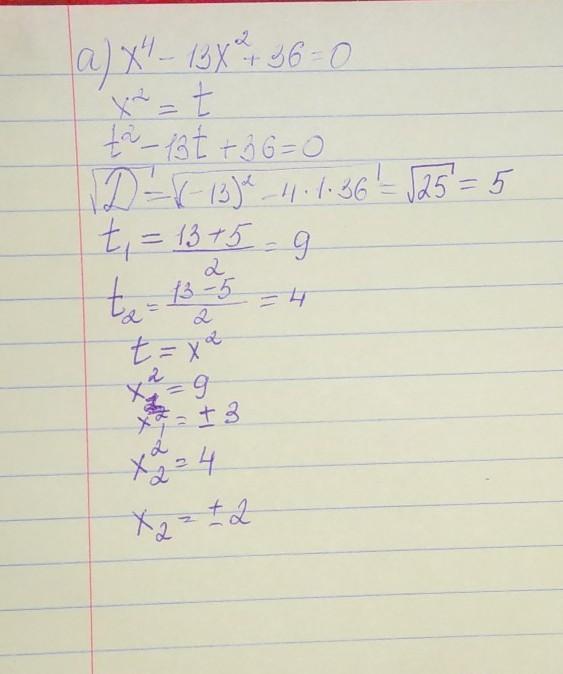 а) x⁴ - 13x² + 36 = 0
x² = t
t² - 13t + 36 = 0
√D = √(-13)² - 4·1·36 = √25 = 5
t₁ = (13+5)/2 = 9
t₂ = (13-5)/2 = 4
t = x²
x² = 9
x₁ = ±3
x₂² = 4
x₂ = ±2